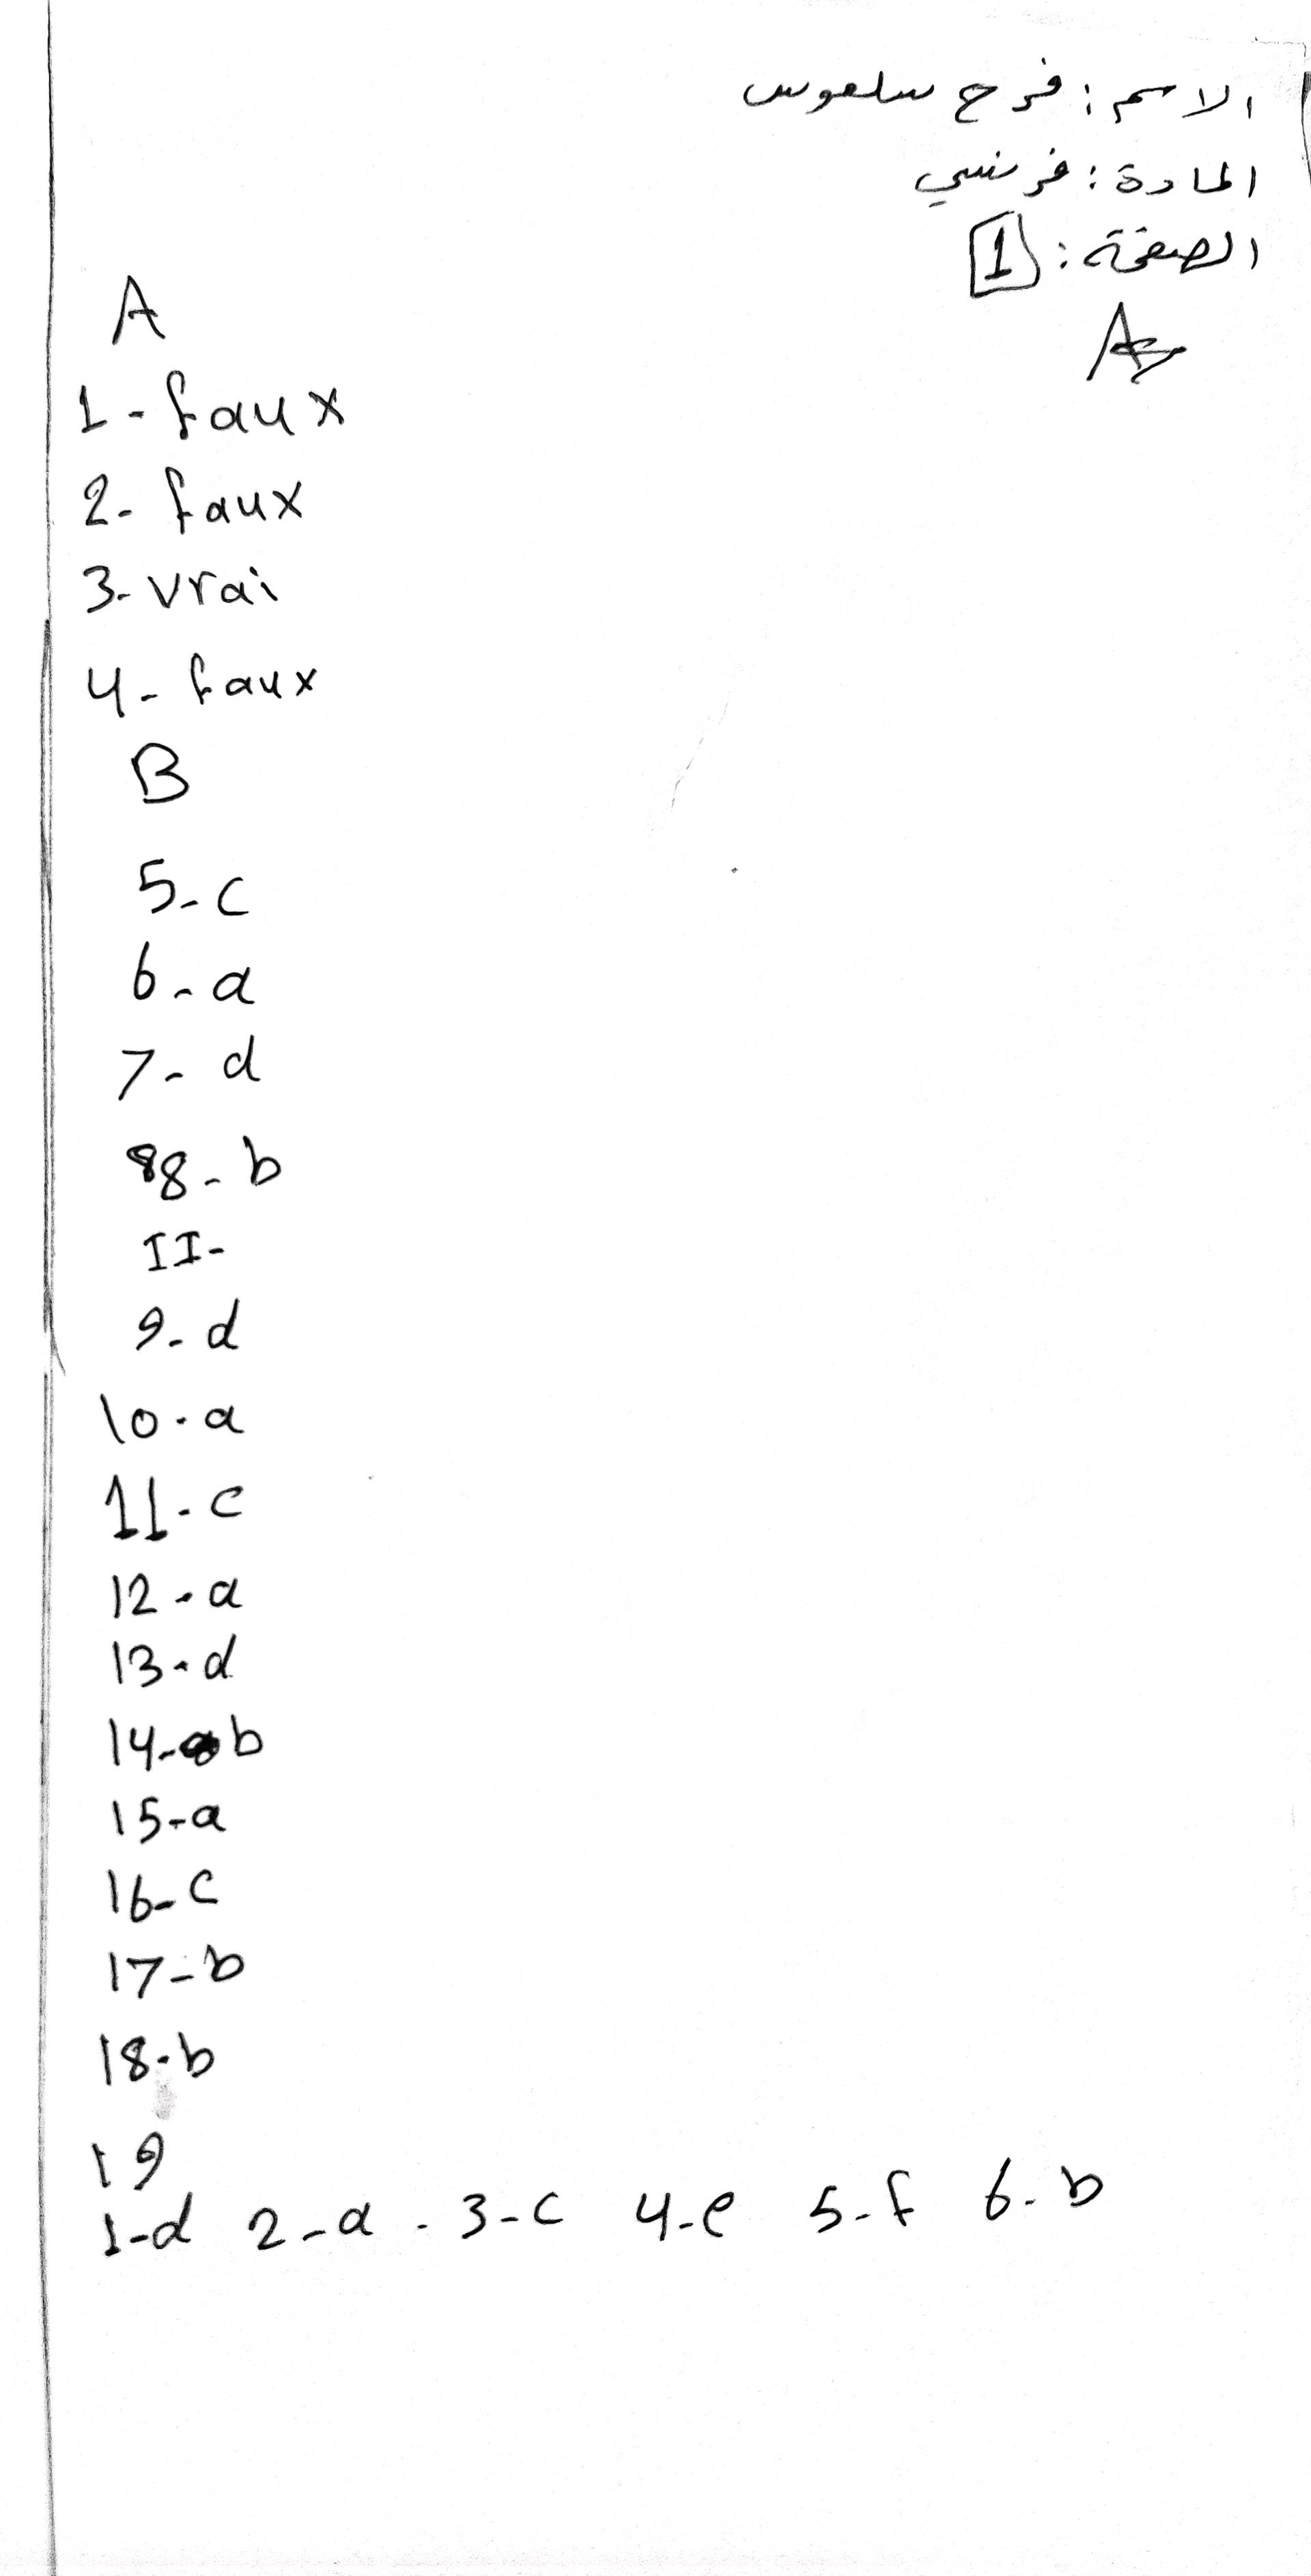 الاسم : فرح سلعوس
المادة : فرنسي
الصفحة : 1
A
1 - faux
2 - faux
3 - vrai
4 - faux
B
5 - c
6 - a
7 - d
8 - b
II -
9 - d
10 - a
11 - c
12 - a
13 - d
14 - b
15 - a
16 - c
17 - b
18 - b
19
1-d 2-a - 3-c 4-e 5-f 6-b